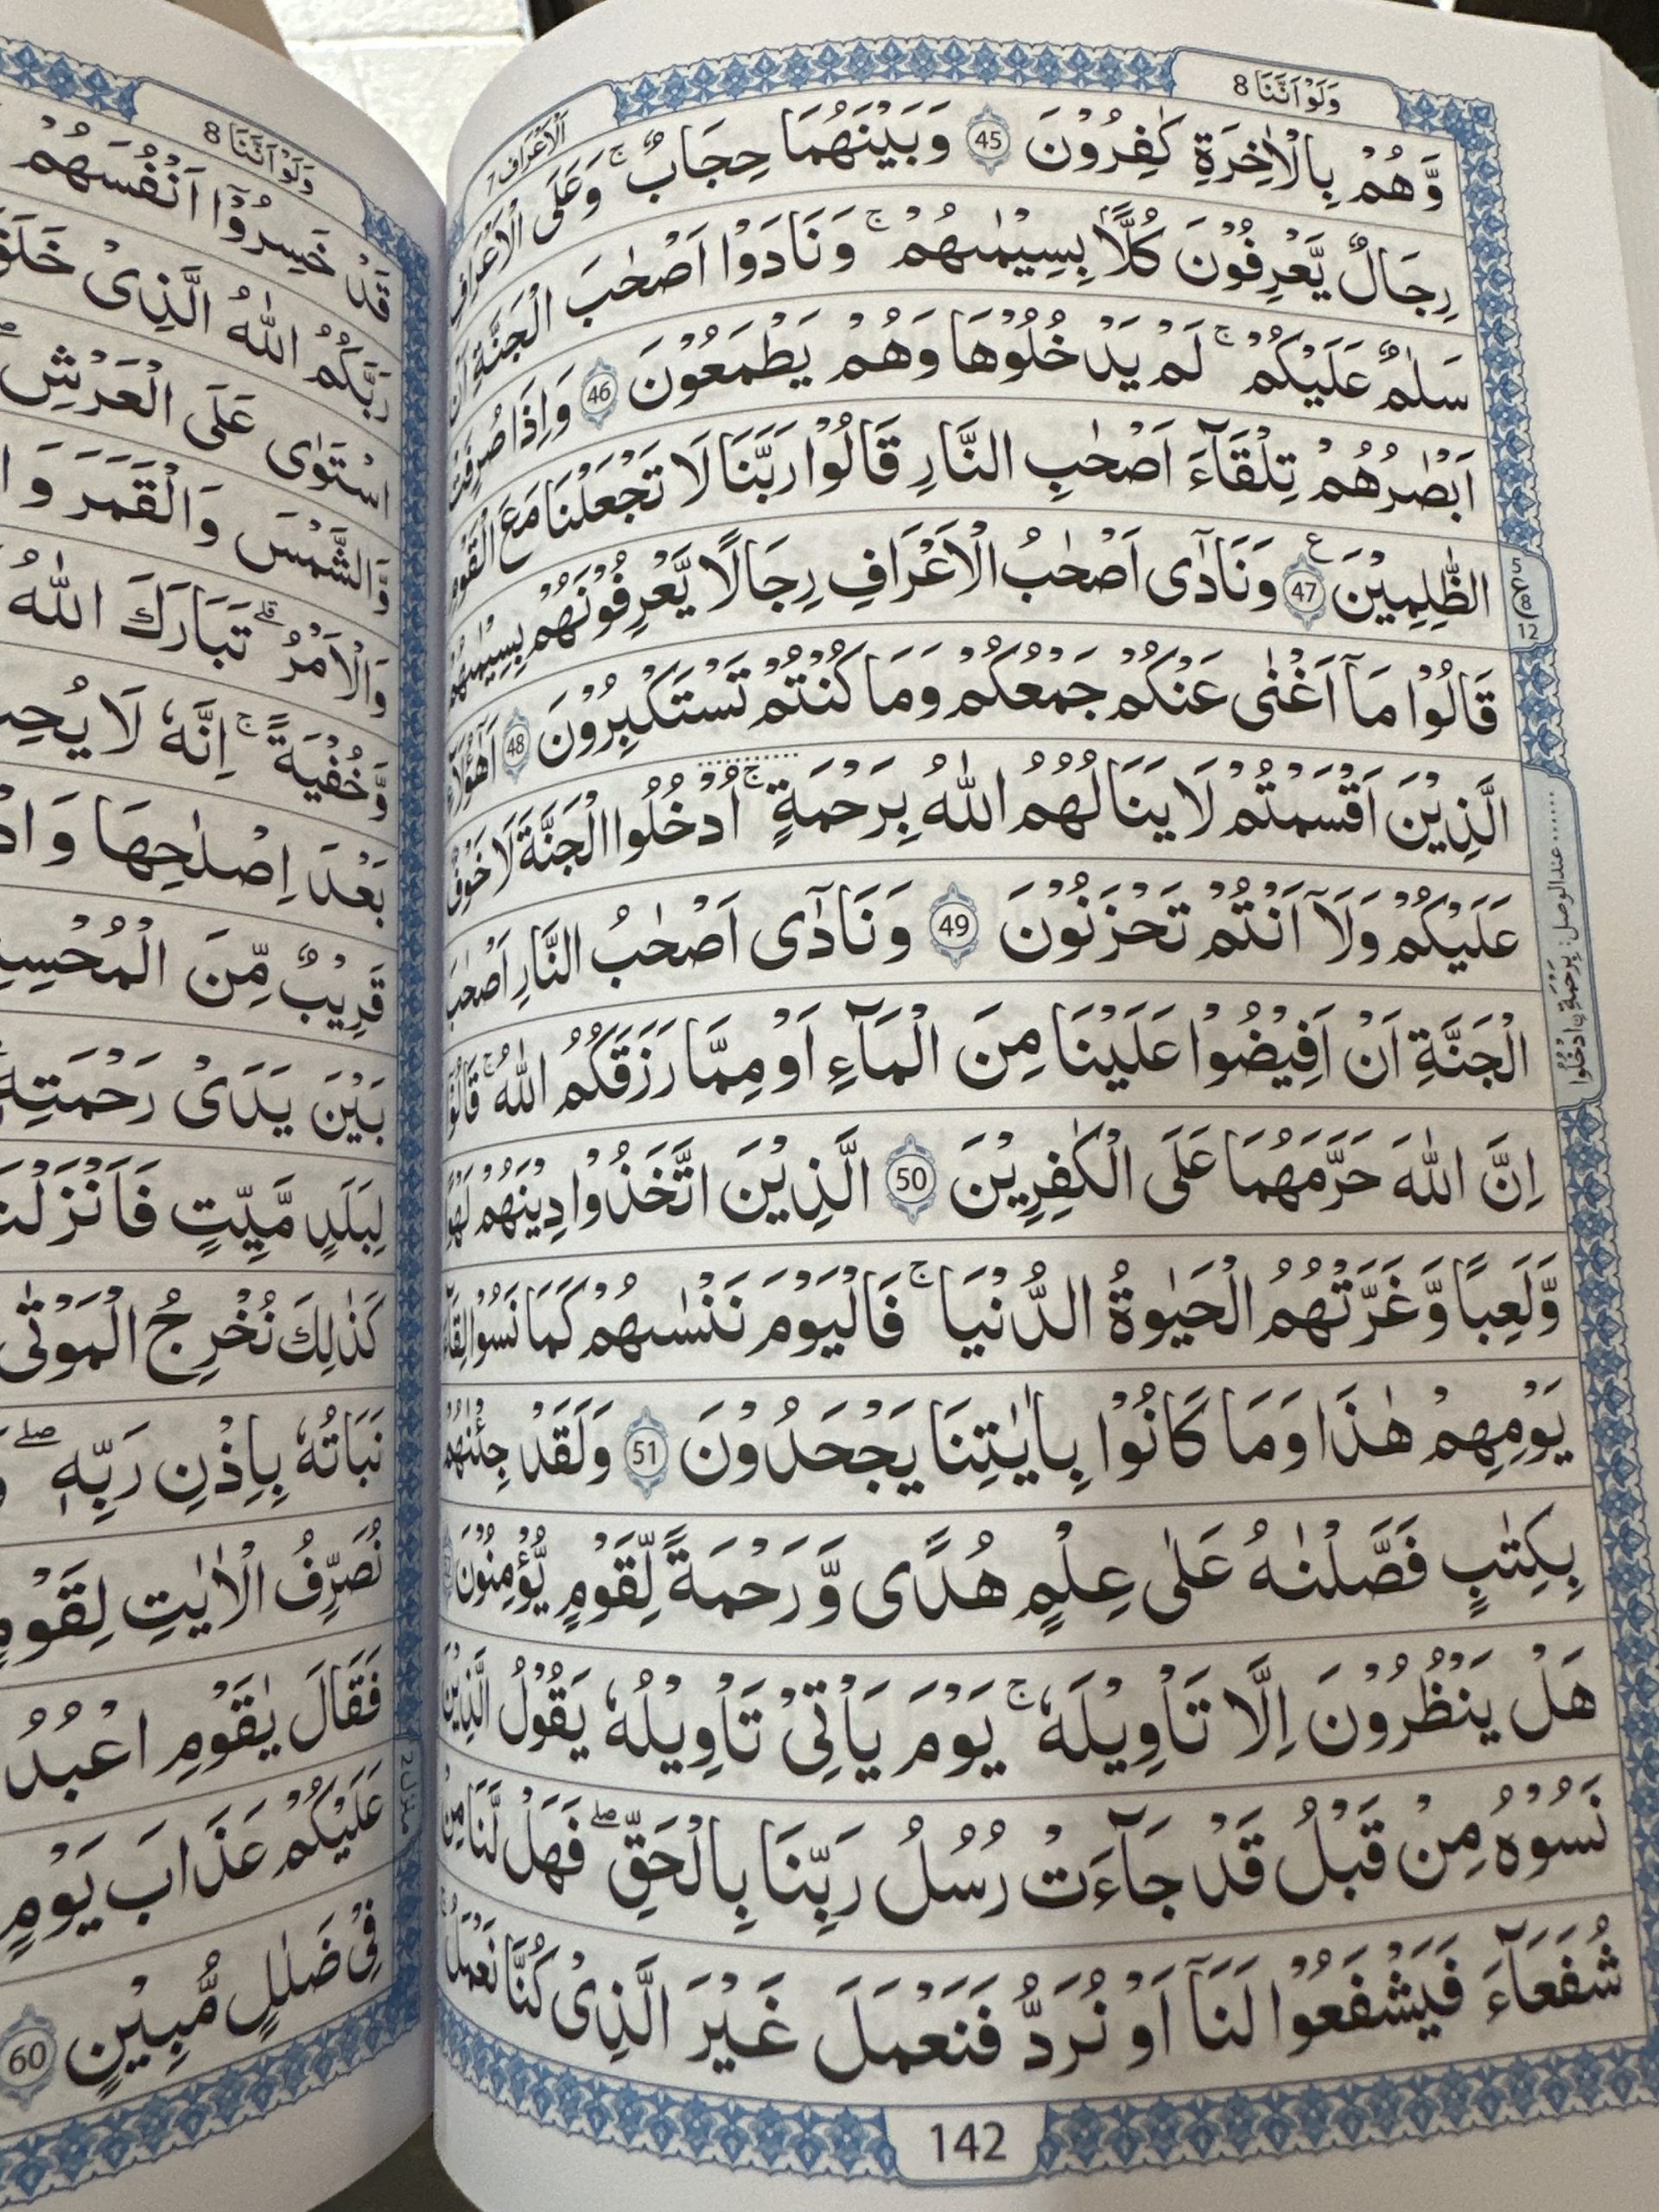 وَلَوْ اَنَّنَا 8
اَلْاَعْرَاف 7
وَّهُمْ بِالْاٰخِرَةِ كٰفِرُوْنَ 45 وَبَيْنَهُمَا حِجَابٌ ۚ وَعَلَى الْاَعْرَافِ
رِجَالٌ يَّعْرِفُوْنَ كُلًّاۢ بِسِيْمٰىهُمْ ۚ وَنَادَوْا اَصْحٰبَ الْجَنَّةِ اَنْ
سَلٰمٌ عَلَيْكُمْ ۚ لَمْ يَدْخُلُوْهَا وَهُمْ يَطْمَعُوْنَ 46 وَاِذَا صُرِفَتْ
اَبْصٰرُهُمْ تِلْقَآءَ اَصْحٰبِ النَّارِ قَالُوْا رَبَّنَا لَا تَجْعَلْنَا مَعَ الْقَوْمِ
الظّٰلِمِيْنَ 47 ع وَنَادٰٓى اَصْحٰبُ الْاَعْرَافِ رِجَالًا يَّعْرِفُوْنَهُمْ بِسِيْمٰىهُمْ
5 ع 8 12
قَالُوْا مَآ اَغْنٰى عَنْكُمْ جَمْعُكُمْ وَمَا كُنْتُمْ تَسْتَكْبِرُوْنَ 48 اَهٰٓؤُلَآءِ
الَّذِيْنَ اَقْسَمْتُمْ لَا يَنَالُهُمُ اللّٰهُ بِرَحْمَةٍ ۚ اُدْخُلُوا الْجَنَّةَ لَا خَوْفٌ
عند الوصل: بِرَحْمَةِ ࣙادْخُلُوا
عَلَيْكُمْ وَلَآ اَنْتُمْ تَحْزَنُوْنَ 49 وَنَادٰٓى اَصْحٰبُ النَّارِ اَصْحٰبَ
الْجَنَّةِ اَنْ اَفِيْضُوْا عَلَيْنَا مِنَ الْمَآءِ اَوْ مِمَّا رَزَقَكُمُ اللّٰهُ ۚ قَالُوْٓا
اِنَّ اللّٰهَ حَرَّمَهُمَا عَلَى الْكٰفِرِيْنَ 50 الَّذِيْنَ اتَّخَذُوْا دِيْنَهُمْ لَهْوًا
وَّلَعِبًا وَّغَرَّتْهُمُ الْحَيٰوةُ الدُّنْيَا ۚ فَالْيَوْمَ نَنْسٰىهُمْ كَمَا نَسُوْا لِقَآءَ
يَوْمِهِمْ هٰذَا وَمَا كَانُوْا بِاٰيٰتِنَا يَجْحَدُوْنَ 51 وَلَقَدْ جِئْنٰهُمْ
بِكِتٰبٍ فَصَّلْنٰهُ عَلٰى عِلْمٍ هُدًى وَّرَحْمَةً لِّقَوْمٍ يُّؤْمِنُوْنَ
هَلْ يَنْظُرُوْنَ اِلَّا تَاْوِيْلَهٗ ۚ يَوْمَ يَاْتِيْ تَاْوِيْلُهٗ يَقُوْلُ الَّذِيْنَ
نَسُوْهُ مِنْ قَبْلُ قَدْ جَآءَتْ رُسُلُ رَبِّنَا بِالْحَقِّ ۖ فَهَلْ لَّنَا مِنْ
شُفَعَآءَ فَيَشْفَعُوْا لَنَآ اَوْ نُرَدُّ فَنَعْمَلَ غَيْرَ الَّذِيْ كُنَّا نَعْمَلُ
142
وَلَوْ اَنَّنَا 8
قَدْ خَسِرُوْٓا اَنْفُسَهُمْ
رَبَّكُمُ اللّٰهُ الَّذِيْ
اسْتَوٰى عَلَى الْعَرْشِ
وَّالشَّمْسَ وَالْقَمَرَ وَ
وَالْاَمْرُ ۗ تَبَارَكَ اللّٰهُ
وَّخُفْيَةً ۚ اِنَّهٗ لَا
بَعْدَ اِصْلٰحِهَا وَ
قَرِيْبٌ مِّنَ
بَيْنَ يَدَيْ رَحْمَتِهٖ
لِبَلَدٍ مَّيِّتٍ
كَذٰلِكَ نُخْرِجُ الْمَوْتٰى
نَبَاتُهٗ بِاِذْنِ رَبِّهٖ ۖ
نُصَرِّفُ الْاٰيٰتِ
فَقَالَ يٰقَوْمِ
منزل ٢
عَلَيْكُمْ عَذَابَ يَوْمٍ
فِيْ ضَلٰلٍ مُّبِيْنٍ 60